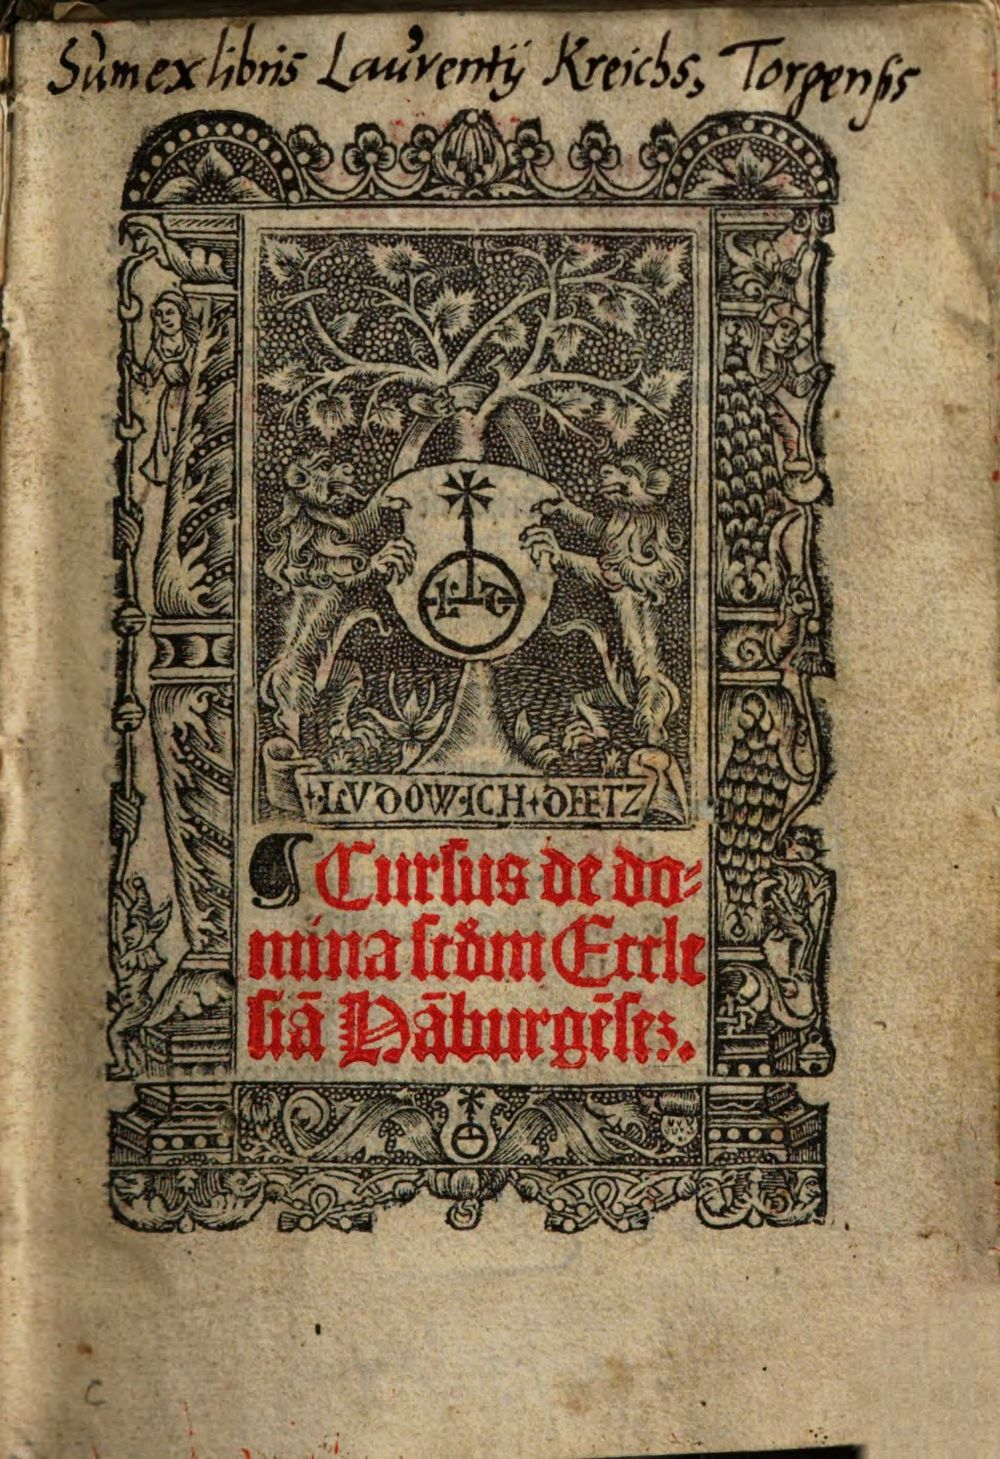 Sum ex libris Laurentij Kreichs, Torgensis
LVDOWICH DIETZ
¶ Cursus de do⸗
mina scd̄m Eccle
siā Nāburgēsez.
C